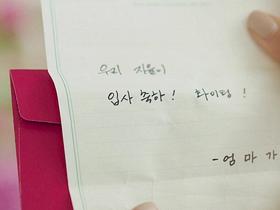 우리 지윤이
입사 축하! 화이팅!
- 엄마가